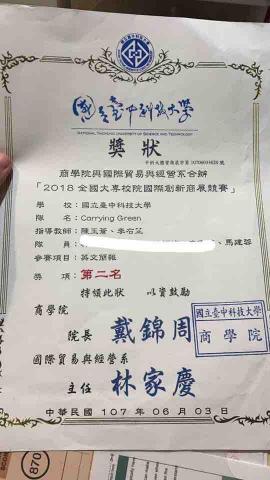 國立臺中科技大學
NATIONAL TAICHUNG UNIVERSITY OF SCIENCE AND TECHNOLOGY
獎狀
商學院與國際貿易與經營系合辦
「2018 全國大專校院國際創新商展競賽」
學 校：國立臺中科技大學
隊 名：Carrying Green
指導教師：陳玉蒼、李有笙
隊 員：
馬建蓉
參賽項目：英文簡報
獎 項：第二名
持頒此狀 以資鼓勵
商學院
院長 戴錦周
國立臺中科技大學
商學院
國際貿易與經營系
主任 林家慶
中華民國 107 年 06 月 03 日
870